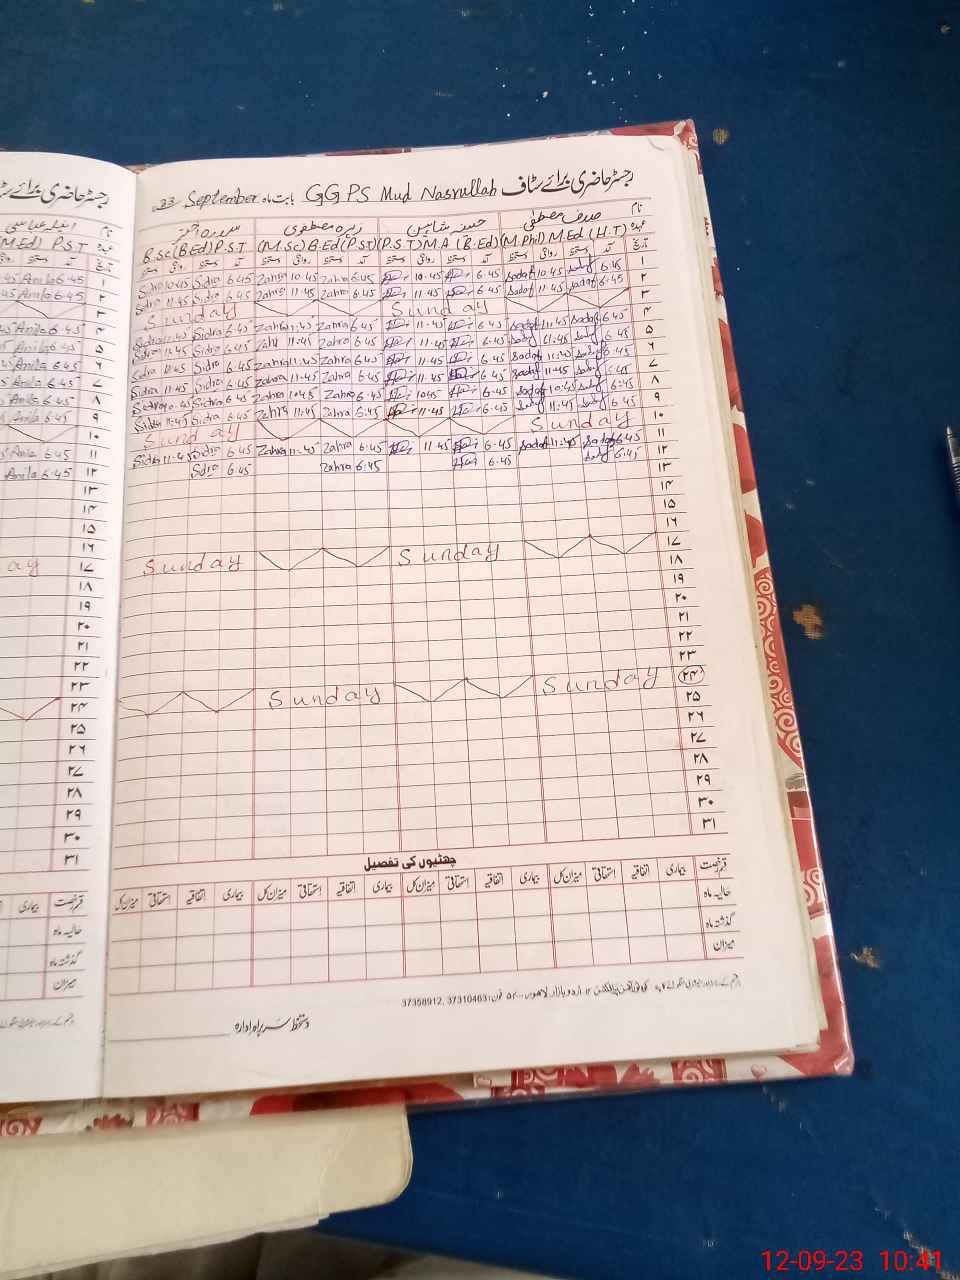 رجسٹر حاضری برائے سٹاف GGPS Mud Nasrullah بابت ماہ September 23
نام صدف مصطفیٰ حسنہ شاہین زہرہ مصطفوی
عہدہ (M.Phil) M.Ed (H.T) (P.S.T) M.A (B.Ed) (M.Sc) B.Ed (P.S.T) B.Sc (B.Ed) P.S.T
تاریخ آمد دستخط روانگی دستخط آمد دستخط روانگی دستخط آمد دستخط روانگی دستخط آمد دستخط روانگی دستخط
۱ 6.45 Sadaf 10.45 Sadaf 6.45 10.45 6.45 Zahra 10.45 Zahra 6.45 Sidra 10.45 Sidra
۲ 6.45 Sadaf 11.45 Sadaf 6.45 11.45 6.45 Zahra 11.45 Zahra 6.45 Sidra 11.45 Sidra
۳ Sunday Sunday
۴ 6.45 Sadaf 11.45 Sadaf 6.45 11.45 6.45 Zahra 11.45 Zahra 6.45 Sidra 11.45 Sidra
۵ 6.45 Sadaf 11.45 Sadaf 6.45 11.45 6.45 Zahra 11.45 Zahra 6.45 Sidra 11.45 Sidra
۶ 6.45 Sadaf 11.45 Sadaf 6.45 11.45 6.45 Zahra 11.45 Zahra 6.45 Sidra 11.45 Sidra
۷ 6.45 Sadaf 11.45 Sadaf 6.45 11.45 6.45 Zahra 11.45 Zahra 6.45 Sidra 11.45 Sidra
۸ 6.45 Sadaf 10.45 Sadaf 6.45 10.45 6.45 Zahra 10.45 Zahra 6.45 Sidra 10.45 Sidra
۹ 6.45 Sadaf 11.45 Sadaf 6.45 11.45 6.45 Zahra 11.45 Zahra 6.45 Sidra 11.45 Sidra
۱۰ Sunday Sunday
۱۱ 6.45 Sadaf 11.45 Sadaf 6.45 11.45 6.45 Zahra 11.45 Zahra 6.45 Sidra 11.45 Sidra
۱۲ 6.45 Sadaf 6.45 6.45 Zahra 6.45 Sidra
۱۳
۱۴
۱۵
۱۶
۱۷ Sunday Sunday
۱۸
۱۹
۲۰
۲۱
۲۲
۲۳
۲۴ Sunday Sunday
۲۵
۲۶
۲۷
۲۸
۲۹
۳۰
۳۱
چھٹیوں کی تفصیل
قسم رخصت بیماری اتفاقیہ استحقاقی میزان کل بیماری اتفاقیہ استحقاقی میزان کل بیماری اتفاقیہ استحقاقی میزان کل بیماری اتفاقیہ استحقاقی میزان کل
حالیہ ماہ
گذشتہ ماہ
میزان
اردو بازار لاہور فون: 37310463, 37358912
دستخط سربراہ ادارہ
رجسٹر حاضری برائے سٹاف
نام
عہدہ P.S.T (M.Ed)
تاریخ آمد دستخط
۱ 6.45 Anila
۲ 6.45 Anila
۳
۴ 6.45 Anila
۵ 6.45 Anila
۶ 6.45 Anila
۷ 6.45 Anila
۸ 6.45 Anila
۹ 6.45 Anila
۱۰
۱۱ 6.45 Anila
۱۲ 6.45 Anila
۱۳
۱۴
۱۵
۱۶
۱۷ ay
۱۸
۱۹
۲۰
۲۱
۲۲
۲۳
۲۴
۲۵
۲۶
۲۷
۲۸
۲۹
۳۰
۳۱
قسم رخصت بیماری
حالیہ ماہ
گذشتہ ماہ
میزان
12-09-23 10:41